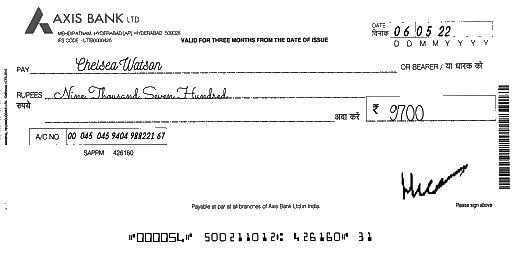 AXIS BANK LTD
MEHDIPATNAM, HYDERABAD [AP] HYDERABAD 500028
IFS CODE - UTIB0000426
VALID FOR THREE MONTHS FROM THE DATE OF ISSUE
DATE
दिनांक 06 05 22
D D M M Y Y Y Y
PAY Chelsea Watson OR BEARER / या धारक को
RUPEES Nine Thousand Seven Hundred
रुपये अदा करें ₹ 9700
A/C NO 00 045 045 9404 988221 67
SAPPM 426160
Payable at par at all branches of Axis Bank Ltd in India.
Please sign above
"000054" 500211012: 426160" 31